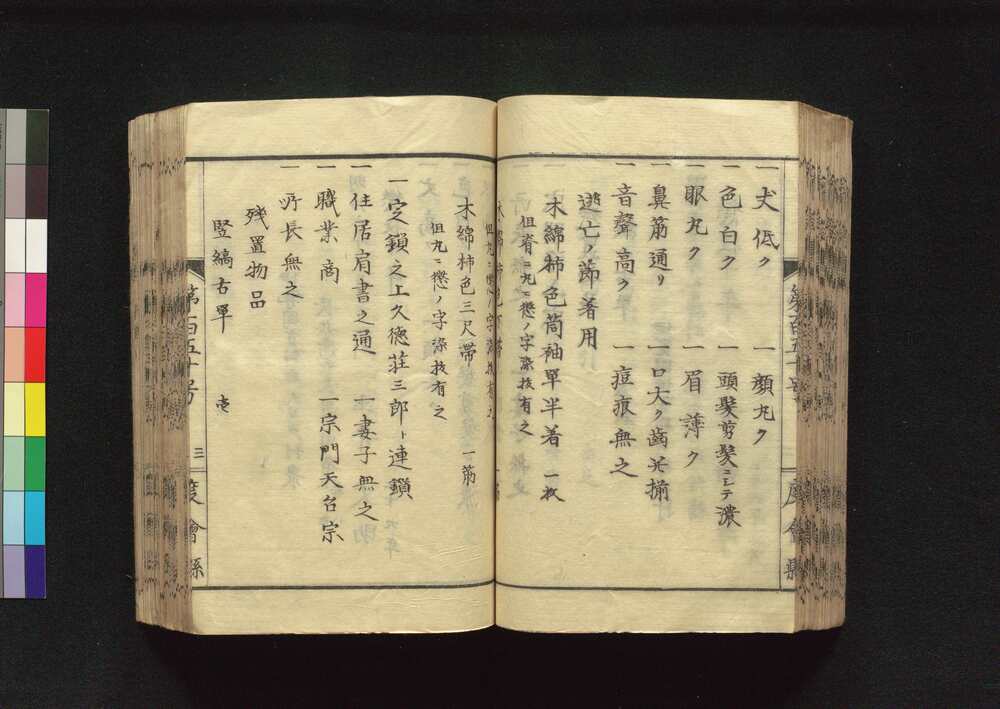 一丈低ク 一顔丸ク
一色白ク 一頭髪剪髪ニシテ濃
一眼丸ク 一眉薄ク
一鼻筋通リ 一口大ク歯並揃
一音聲高ク 一痘痕無之
逃亡ノ節著用
一木綿柿色筒袖單半着 一枚
但脊ニ丸ニ懲ノ字染抜有之
一木綿柿色下帯 一筋
但丸ニ懲ノ字染抜有之
木綿柿色三尺帯 一筋
但丸ニ懲ノ字染抜有之
一定鎖之上久徳荘三郎ト連鎖
一住居肩書之通 一妻子無之
一職業商 一宗門天台宗
一所長無之
残置物品
竪縞古單 壱
第百五十号 三 度會縣
第百五十号 二 度會縣